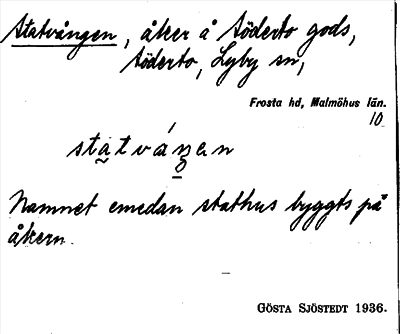 Statvången, åker å Söderto gods,
Söderto, Lyby sn,
Frosta hd, Malmöhus län.
10
Namnet emedan stathus byggts på
åkern.
GÖSTA SJÖSTEDT 1936.